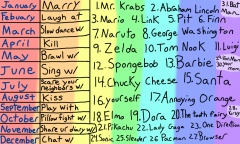 January Marry
Febuary Laugh at
March Slow dance w/
April Kill
May Brawl w/
June Sing w/
July Scare your Neighbors w/
August Kiss
September Play with
October Pillow fight w/
November Share ur diary w/
December Chat w/
1. Mr. Krabs 2. Abraham Lincoln
3. Mario 4. Link 5. Pit 6. Finn
7. Naruto 8. George Washington
9. Zelda 10. Tom Nook 11. Luigi
12. Spongebob 13. Barbie
14. Chucky Cheese 15. Santa
16. yourself 17. Annoying Orange
18. Elmo 19. Dora 20. The tooth Fairy
21. Pikachu 22. Lady Gaga 23. One Direction
24. Sonic 25. Slender 26. Pac man 27. Bowser